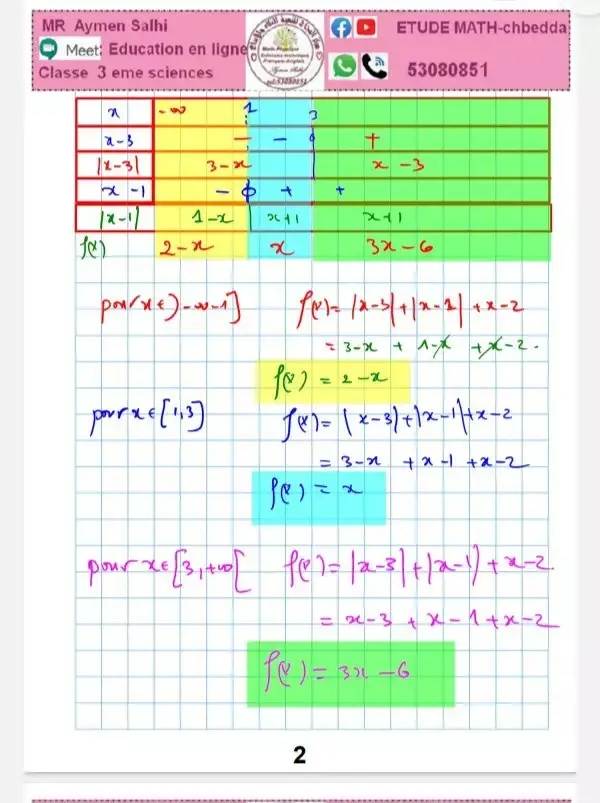 MR Aymen Salhi
Meet: Education en ligne
Classe 3 eme sciences
ETUDE MATH-chbedda
53080851
x -∞ 1 3
x-3 - - 0 +
|x-3| 3-x x-3
x-1 - 0 + +
|x-1| 1-x x+1 x+1
f(x) 2-x x 3x-6
pour x∈)-∞-1] f(x)=|x-3|+|x-1|+x-2
= 3-x + 1-x +x-2.
f(x) = 2-x
pour x∈[1,3] f(x)=|x-3|+|x-1|+x-2
= 3-x +x-1 +x-2
f(x) = x
pour x∈[3,+∞[ f(x)=|x-3|+|x-1|+x-2.
= x-3 + x-1+x-2
f(x)= 3x-6
2